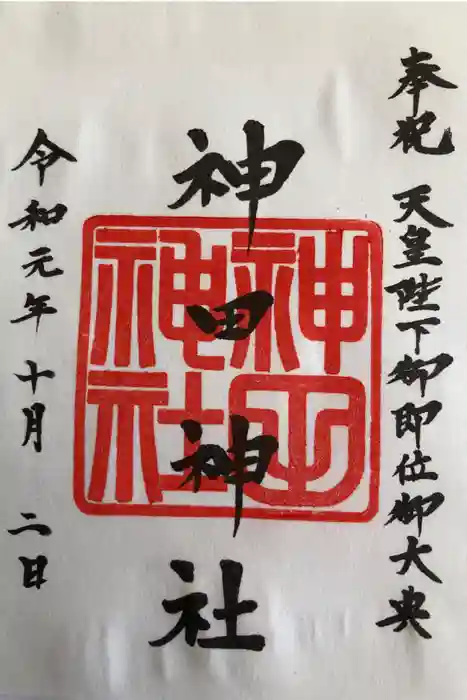 奉祝 天皇陛下御即位御大典
神田神社
神田
神社
令和元年 十月 二日